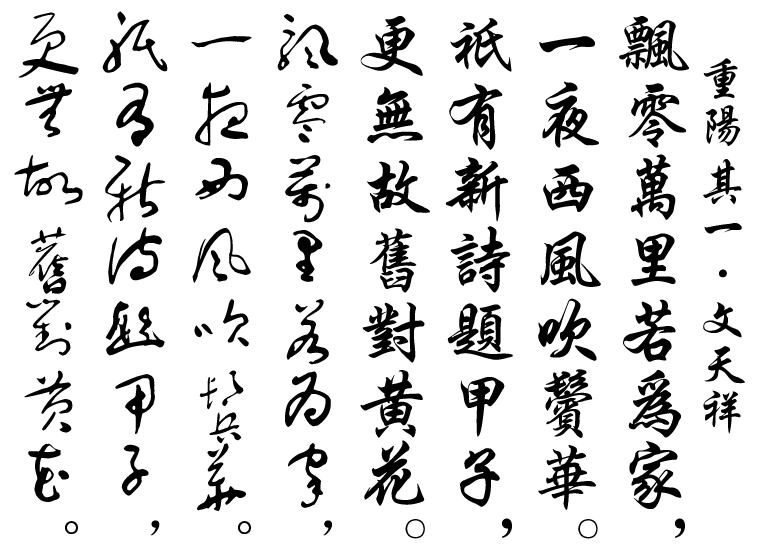 重陽其一·文天祥
飄零萬里若為家，
一夜西風吹鬢華。
祇有新詩題甲子，
更無故舊對黃花。
飄零萬里若為家，
一夜西風吹鬢華。
祇有新詩題甲子，
更無故舊對黃花。